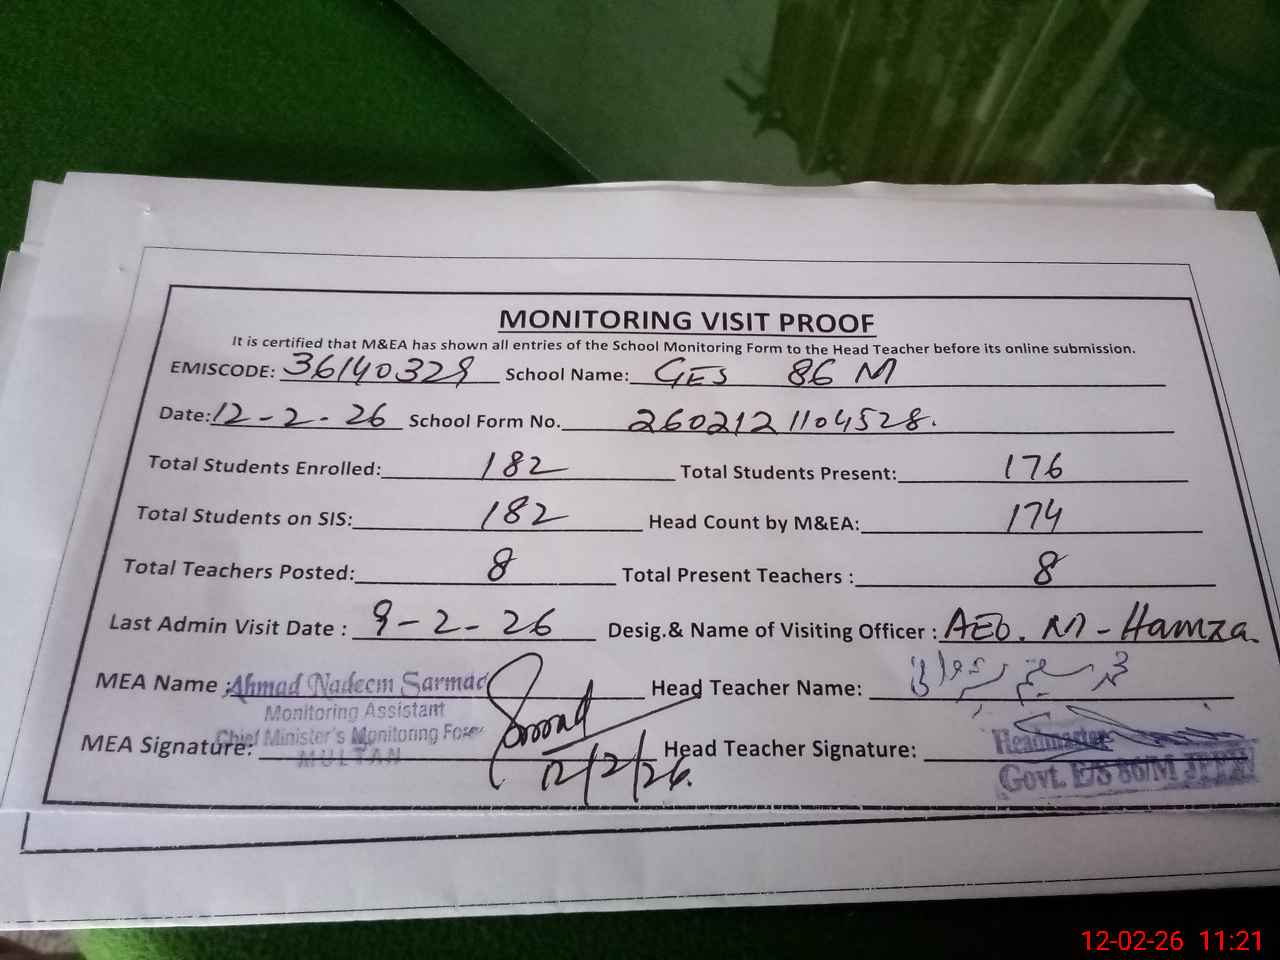 MONITORING VISIT PROOF
It is certified that M&EA has shown all entries of the School Monitoring Form to the Head Teacher before its online submission.
EMISCODE: 36140329 School Name: GES 86 M
Date: 12-2-26 School Form No. 2602121104528.
Total Students Enrolled: 182 Total Students Present: 176
Total Students on SIS: 182 Head Count by M&EA: 174
Total Teachers Posted: 8 Total Present Teachers : 8
Last Admin Visit Date : 9-2-26 Desig.& Name of Visiting Officer : AEO. M-Hamza.
MEA Name : Ahmad Nadeem Sarmad Head Teacher Name:
Monitoring Assistant
Chief Minister's Monitoring Force
MULTAN
MEA Signature: 12/2/26. Head Teacher Signature:
Headmaster
Govt. E/S 86/M
12-02-26 11:21